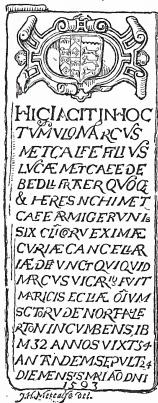 HIC IACIT IN HOC
TVMVLO MARCVS
METCALFE FILIVS
LVCÆ METCAFE DE
BEDLL FRATER QVOQ
& HERES NCHI MET
CAFE ARMIGER VNI
SIX CVRIÆ
CVRIÆ CANCELLAR
QVIQVID
MARCVS VICAR FVIT
MARICIS ECLIÆ OIVM
SCTORV DE NORTHALE
RTON INCVMBENS IB
M 32 ANNOS VIXT 54
AN TANDEM SEPVLT 24
DIE MENSIS MAI AO DNI
1593
J.H. Metcalfe del.